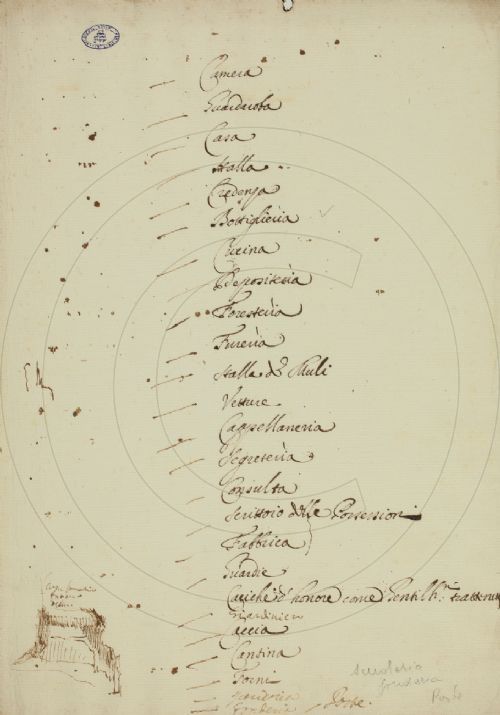 Camera
Guardaroba
Casa
Stalla
Credenza
Bottiglieria
Cucina
Depositeria
Foresteria
Fureria
Stalla de Muli
Vetture
Cappellaneria
Segreteria
Consulta
Scrittoio delle Possessioni
Fabbrica
Guardie
Cariche d'honore come Gentilh.
Giardiniere
Caccia
Cantina
Forni
Poste